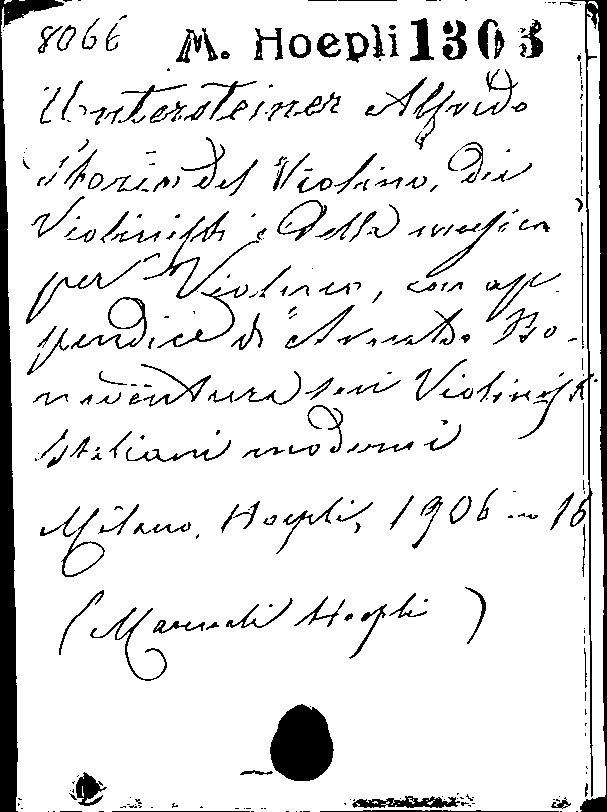 8066 M. Hoepli 1303
Untersteiner Alfredo
Storia del Violino, dei
Violinisti e della musica
per Violino, con ap-
pendice di Arnaldo Bo-
naventura sui Violinisti
Italiani moderni
Milano, Hoepli, 1906 in 16
(Manuali Hoepli)